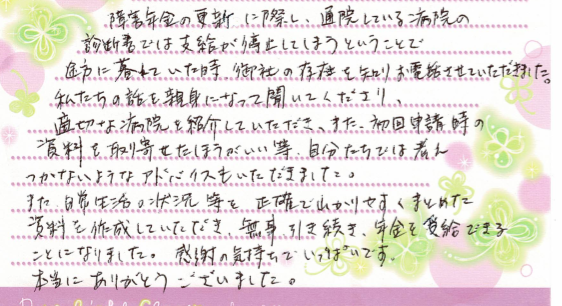 障害年金の更新に際し、通院している病院の
診断書では支給が停止してしまうということで
途方に暮れていた時、御社の存在を知りお電話させていただきました。
私たちの話を親身になって聞いてくださり、
適切な病院を紹介していただき、また、初回申請時の
資料を取り寄せたほうがいい等、自分たちでは考え
つかないようなアドバイスもいただきました。
また、日常生活の状況等を正確で分かりやすくまとめた
資料を作成していただき、無事引き続き、年金を受給できる
ことになりました。感謝の気持ちでいっぱいです。
本当にありがとうございました。